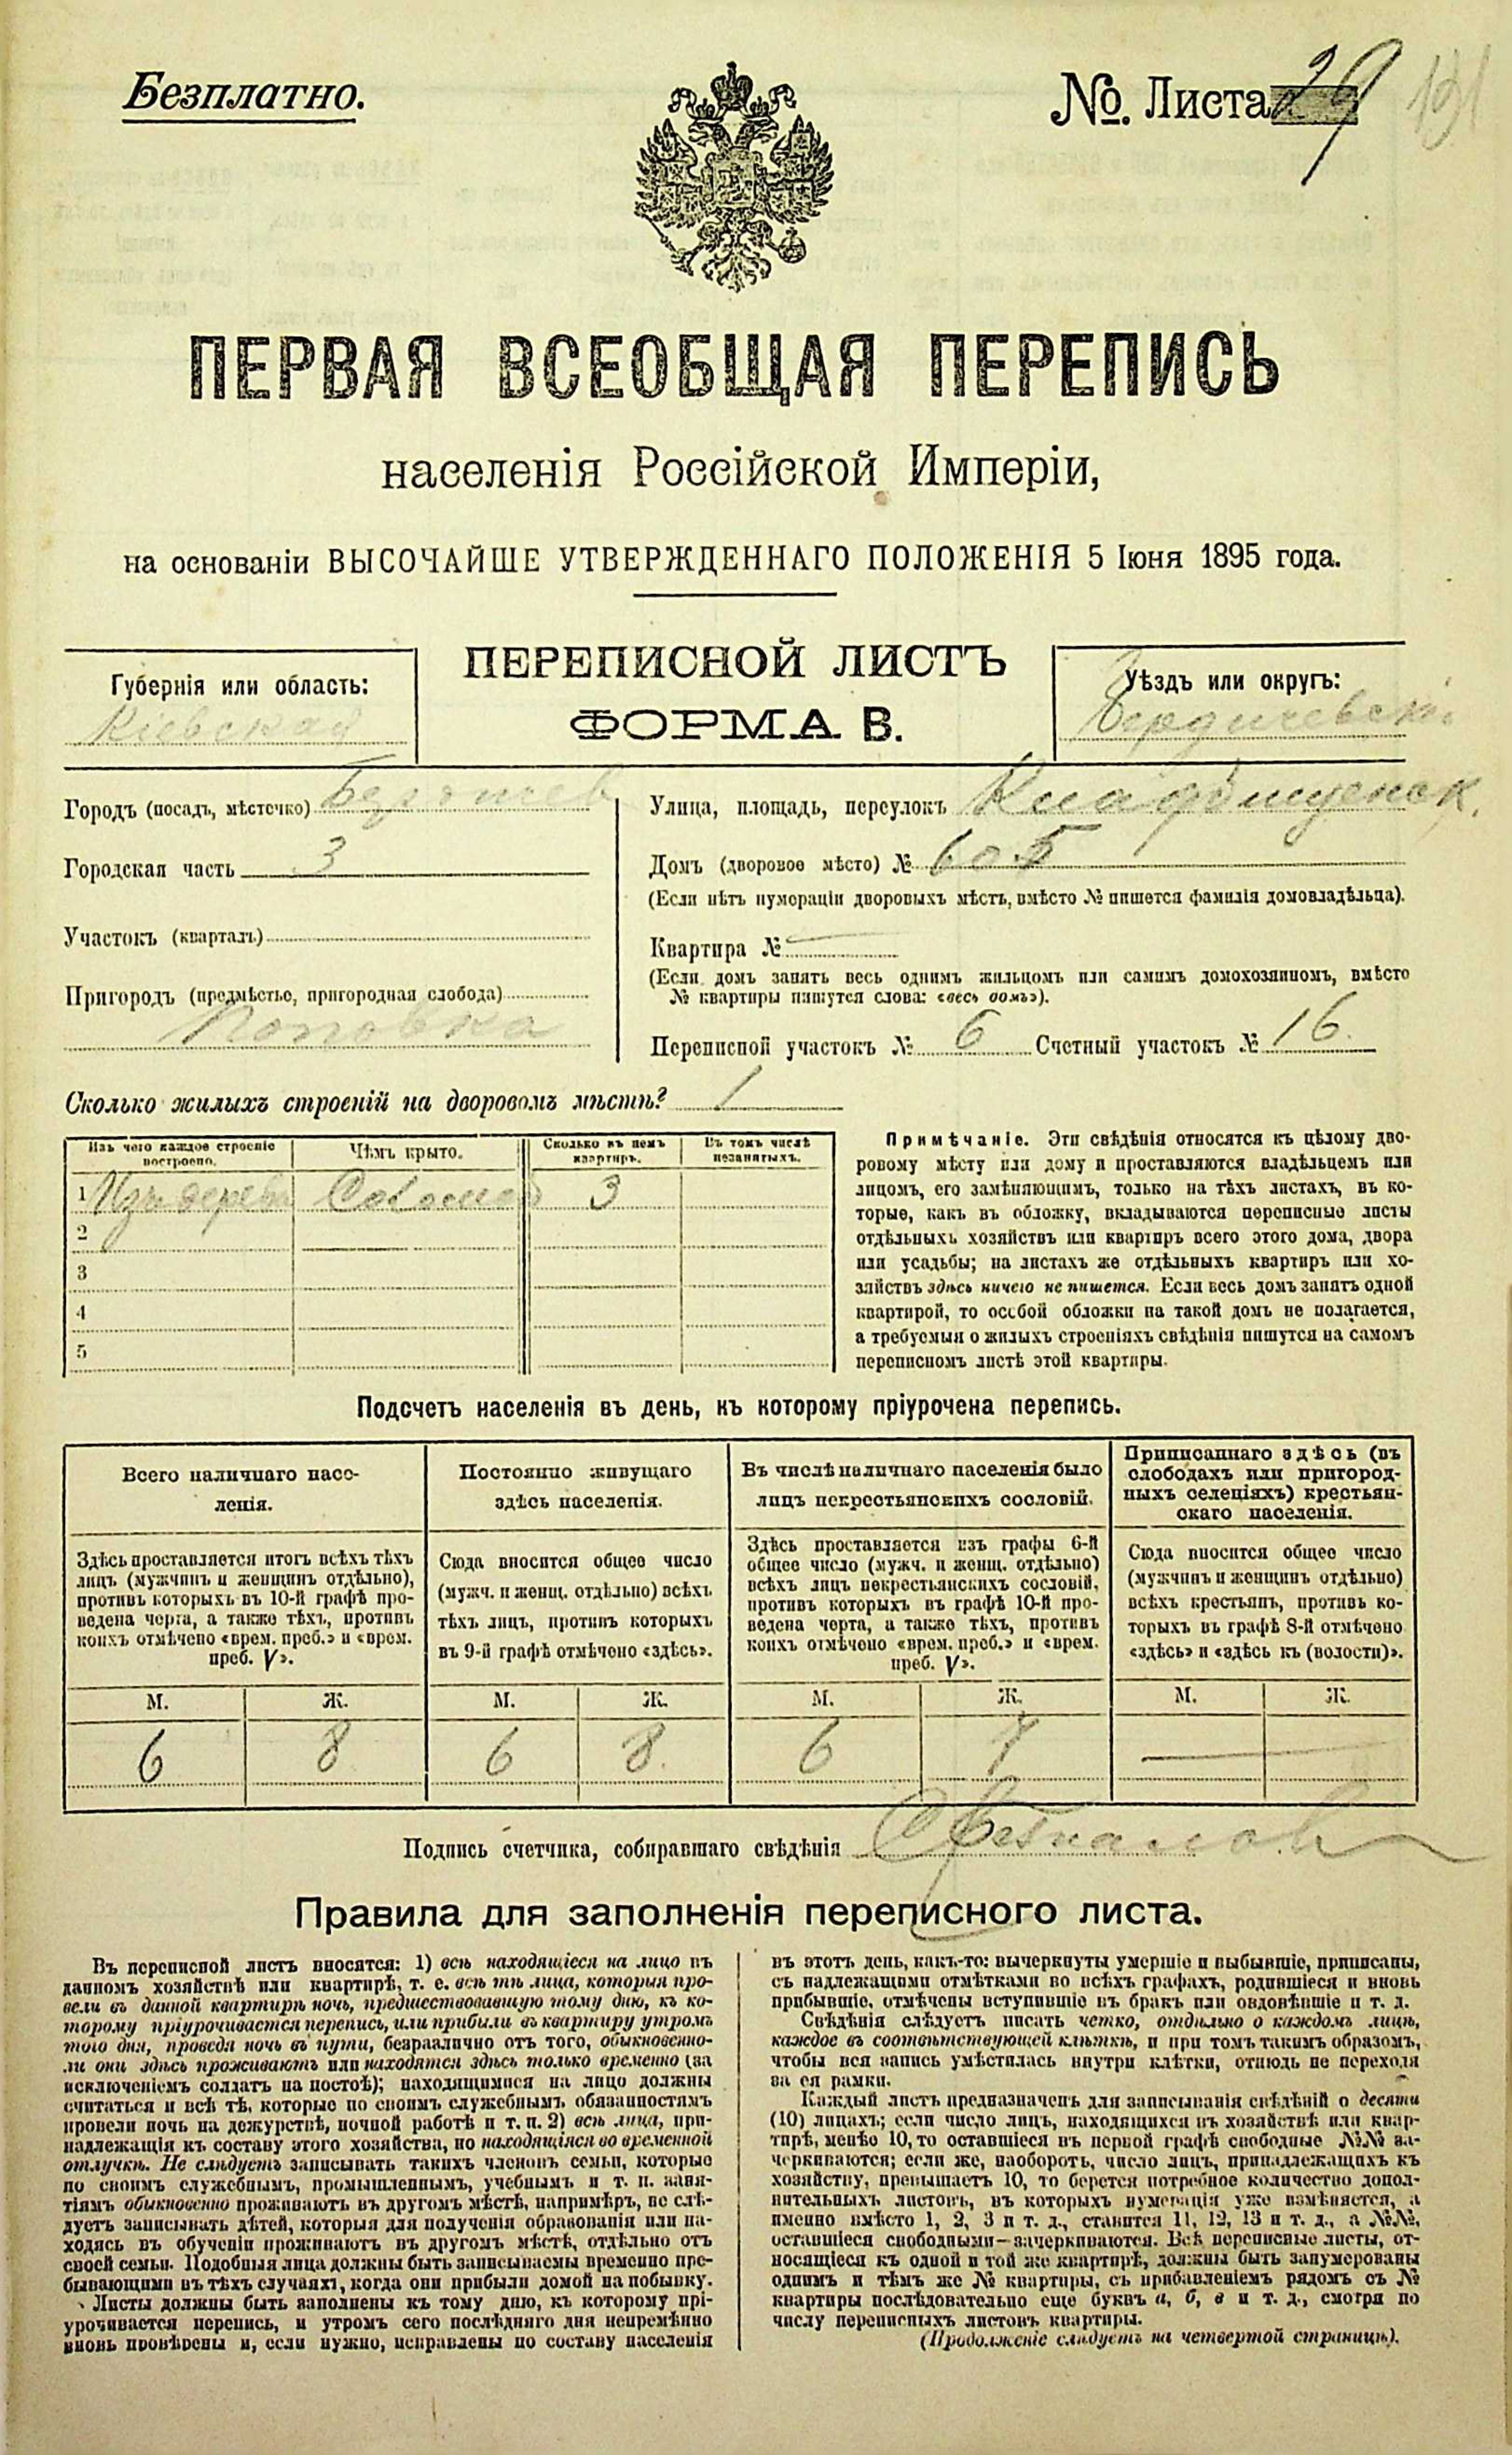 Безплатно.
№. Листа 29
ПЕРВАЯ ВСЕОБЩАЯ ПЕРЕПИСЬ
населенія Россійской Имперіи,
на основаніи ВЫСОЧАЙШЕ УТВЕРЖДЕННАГО ПОЛОЖЕНІЯ 5 Іюня 1895 года.
Губернія или область:
Кіевская
ПЕРЕПИСНОЙ ЛИСТЪ
ФОРМА В.
Уѣздъ или округъ:
Бердичевскі
Городъ (посадъ, мѣстечко) Бердичев
Городская часть 3
Участокъ (кварталъ)
Пригородъ (предмѣстье, пригородная слобода)
Поповка
Улица, площадь, переулокъ
Домъ (дворовое мѣсто) № 605
(Если нѣтъ нумераціи дворовыхъ мѣстъ, вмѣсто № пишется фамилія домовладѣльца).
Квартира №
(Если домъ занятъ весь однимъ жильцомъ или самимъ домохозяиномъ, вмѣсто
№ квартиры пишутся слова: «весь домъ»).
Переписной участокъ № 6 Счетный участокъ № 16
Сколько жилыхъ строеній на дворовомъ мѣстѣ? 1
Изъ чего каждое строеніе
построено.
Чѣмъ крыто.
Сколько въ немъ
квартиръ.
Въ томъ числѣ
незанятыхъ.
1 Изъ дерева Соломой 3
2
3
4
5
Примѣчаніе. Эти свѣдѣнія относятся къ цѣлому дво-
ровому мѣсту или дому и проставляются владѣльцемъ или
лицомъ, его замѣняющимъ, только на тѣхъ листахъ, въ ко-
торые, какъ въ обложку, вкладываются переписные листы
отдѣльныхъ хозяйствъ или квартиръ всего этого дома, двора
или усадьбы; на листахъ же отдѣльныхъ квартиръ или хо-
зяйствъ здѣсь ничего не пишется. Если весь домъ занятъ одной
квартирой, то особой обложки на такой домъ не полагается,
а требуемыя о жилыхъ строеніяхъ свѣдѣнія пишутся на самомъ
переписномъ листѣ этой квартиры.
Подсчетъ населенія въ день, къ которому пріурочена перепись.
Всего наличнаго насе-
ленія.
Здѣсь проставляется итогъ всѣхъ тѣхъ
лицъ (мужчинъ и женщинъ отдѣльно),
противъ которыхъ въ 10-й графѣ про-
ведена черта, а также тѣхъ, противъ
коихъ отмѣчено «врем. преб.» и «врем.
преб. V».
Постоянно живущаго
здѣсь населенія.
Сюда вносится общее число
(мужч. и женщ. отдѣльно) всѣхъ
тѣхъ лицъ, противъ которыхъ
въ 9-й графѣ отмѣчено «здѣсь».
Въ числѣ наличнаго населенія было
лицъ некрестьянскихъ сословій.
Здѣсь проставляется изъ графы 6-й
общее число (мужч. и женщ. отдѣльно)
всѣхъ лицъ некрестьянскихъ сословій,
противъ которыхъ въ графѣ 10-й про-
ведена черта, а также тѣхъ, противъ
коихъ отмѣчено «врем. преб.» и «врем.
преб. V».
Приписаннаго здѣсь (въ
слободахъ или пригород-
ныхъ селеніяхъ) крестьян-
скаго населенія.
Сюда вносится общее число
(мужчинъ и женщинъ отдѣльно)
всѣхъ крестьянъ, противъ ко-
торыхъ въ графѣ 8-й отмѣчено
«здѣсь» и «здѣсь къ (волости)».
М. Ж. М. Ж. М. Ж. М. Ж.
6 8 6 8 6 7
Подпись счетчика, собиравшаго свѣдѣнія
Правила для заполненія переписного листа.
Въ переписной листъ вносятся: 1) всѣ находящіеся на лицо въ
данномъ хозяйствѣ или квартирѣ, т. е. всѣ тѣ лица, которыя про-
вели въ данной квартирѣ ночь, предшествовавшую тому дню, къ ко-
торому пріурочивается перепись, или прибыли въ квартиру утромъ
того дня, проведя ночь въ пути, безразлично отъ того, обыкновенно-
ли они здѣсь проживаютъ или находятся здѣсь только временно (за
исключеніемъ солдатъ на постоѣ); находящимися на лицо должны
считаться и всѣ тѣ, которые по своимъ служебнымъ обязанностямъ
провели ночь на дежурствѣ, ночной работѣ и т. п. 2) всѣ лица, при-
надлежащія къ составу этого хозяйства, но находящіяся во временной
отлучкѣ. Не слѣдуетъ записывать такихъ членовъ семьи, которые
по своимъ служебнымъ, промышленнымъ, учебнымъ и т. п. заня-
тіямъ обыкновенно проживаютъ въ другомъ мѣстѣ, напримѣръ, не слѣ-
дуетъ записывать дѣтей, которыя для полученія образованія или на-
ходясь въ обученіи проживаютъ въ другомъ мѣстѣ, отдѣльно отъ
своей семьи. Подобныя лица должны быть записываемы временно пре-
бывающими въ тѣхъ случаяхъ, когда они прибыли домой на побывку.
Листы должны быть заполнены къ тому дню, къ которому прі-
урочивается перепись, и утромъ сего послѣдняго дня непремѣнно
вновь провѣрены и, если нужно, исправлены по составу населенія
въ этотъ день, какъ-то: вычеркнуты умершіе и выбывшіе, приписаны,
съ надлежащими отмѣтками во всѣхъ графахъ, родившіеся и вновь
прибывшіе, отмѣчены вступившіе въ бракъ или овдовѣвшіе и т. д.
Свѣдѣнія слѣдуетъ писать четко, отдѣльно о каждомъ лицѣ,
каждое въ соотвѣтствующей клѣткѣ, и при томъ такимъ образомъ,
чтобы вся запись умѣстилась внутри клѣтки, отнюдь не переходя
за ея рамки.
Каждый листъ предназначенъ для записыванія свѣдѣній о десяти
(10) лицахъ; если число лицъ, находящихся въ хозяйствѣ или квар-
тирѣ, менѣе 10, то оставшіеся въ первой графѣ свободные №№ за-
черкиваются; если же, наоборотъ, число лицъ, принадлежащихъ къ
хозяйству, превышаетъ 10, то берется потребное количество допол-
нительныхъ листовъ, въ которыхъ нумерація уже измѣняется, а
именно вмѣсто 1, 2, 3 и т. д., ставится 11, 12, 13 и т. д., а №№,
оставшіеся свободными—зачеркиваются. Всѣ переписные листы, от-
носящіеся къ одной и той же квартирѣ, должны быть занумерованы
однимъ и тѣмъ же № квартиры, съ прибавленіемъ рядомъ съ №
квартиры послѣдовательно еще буквъ а, б, в и т. д., смотря по
числу переписныхъ листовъ квартиры.
(Продолженіе слѣдуетъ на четвертой страницѣ).